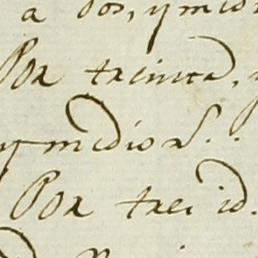 a dos, y medio
Por treinta,
y medio rs.
Por trei id.